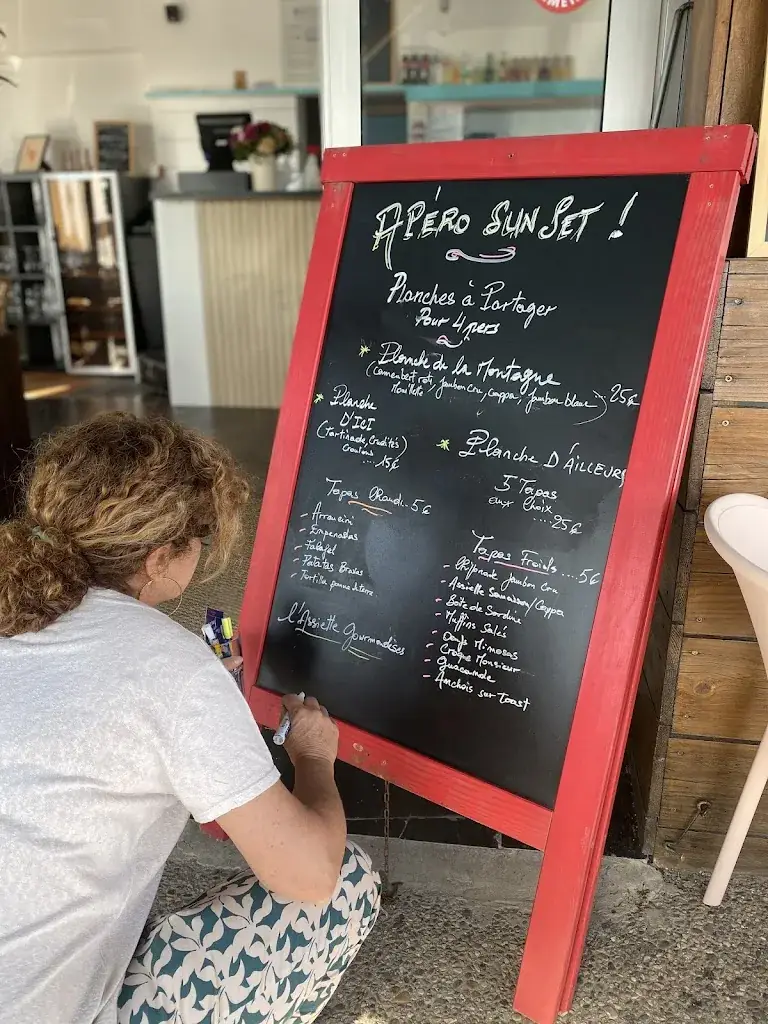 APÉRO SUNSET !
Planches à Partager
Pour 4 pers
Planche de la Montagne
(Camembert roti, jambon cru, coppa, jambon blanc)
Mouillette
25€
Planche
D'ICI
(Tartinade, Crudités
Croutons)
.... 15€
Planche D'AILLEURS
5 Tapas
aux choix
.... 25€
Tapas Chauds. 5€
- Arrancini
- Empenadas
- Falafel
- Patatas Bravas
- Tortilla pomme de terre
l'Assiette Gourmandises
Tapas Froids .... 5€
- Chiffonade jambon cru
- Assiette Saucisson/Coppa
- Boite de Sardine
- Muffins Salés
- Oeufs Mimosas
- Croque Monsieur
- Guacamole
- Anchois sur Toast